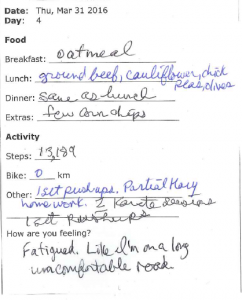 Date: Thu, Mar 31 2016
Day: 4
Food
Breakfast: oatmeal
Lunch: ground beef, cauliflower, chick
peas, olives
Dinner: same as lunch
Extras: few corn chips
Activity
Steps: 13,189
Bike: 0 km
Other: 1 set pushups. Partial Mary
homework. 2 Karate
1 set Pushups
How are you feeling?
Fatigued. Like I'm on a long
uncomfortable road.